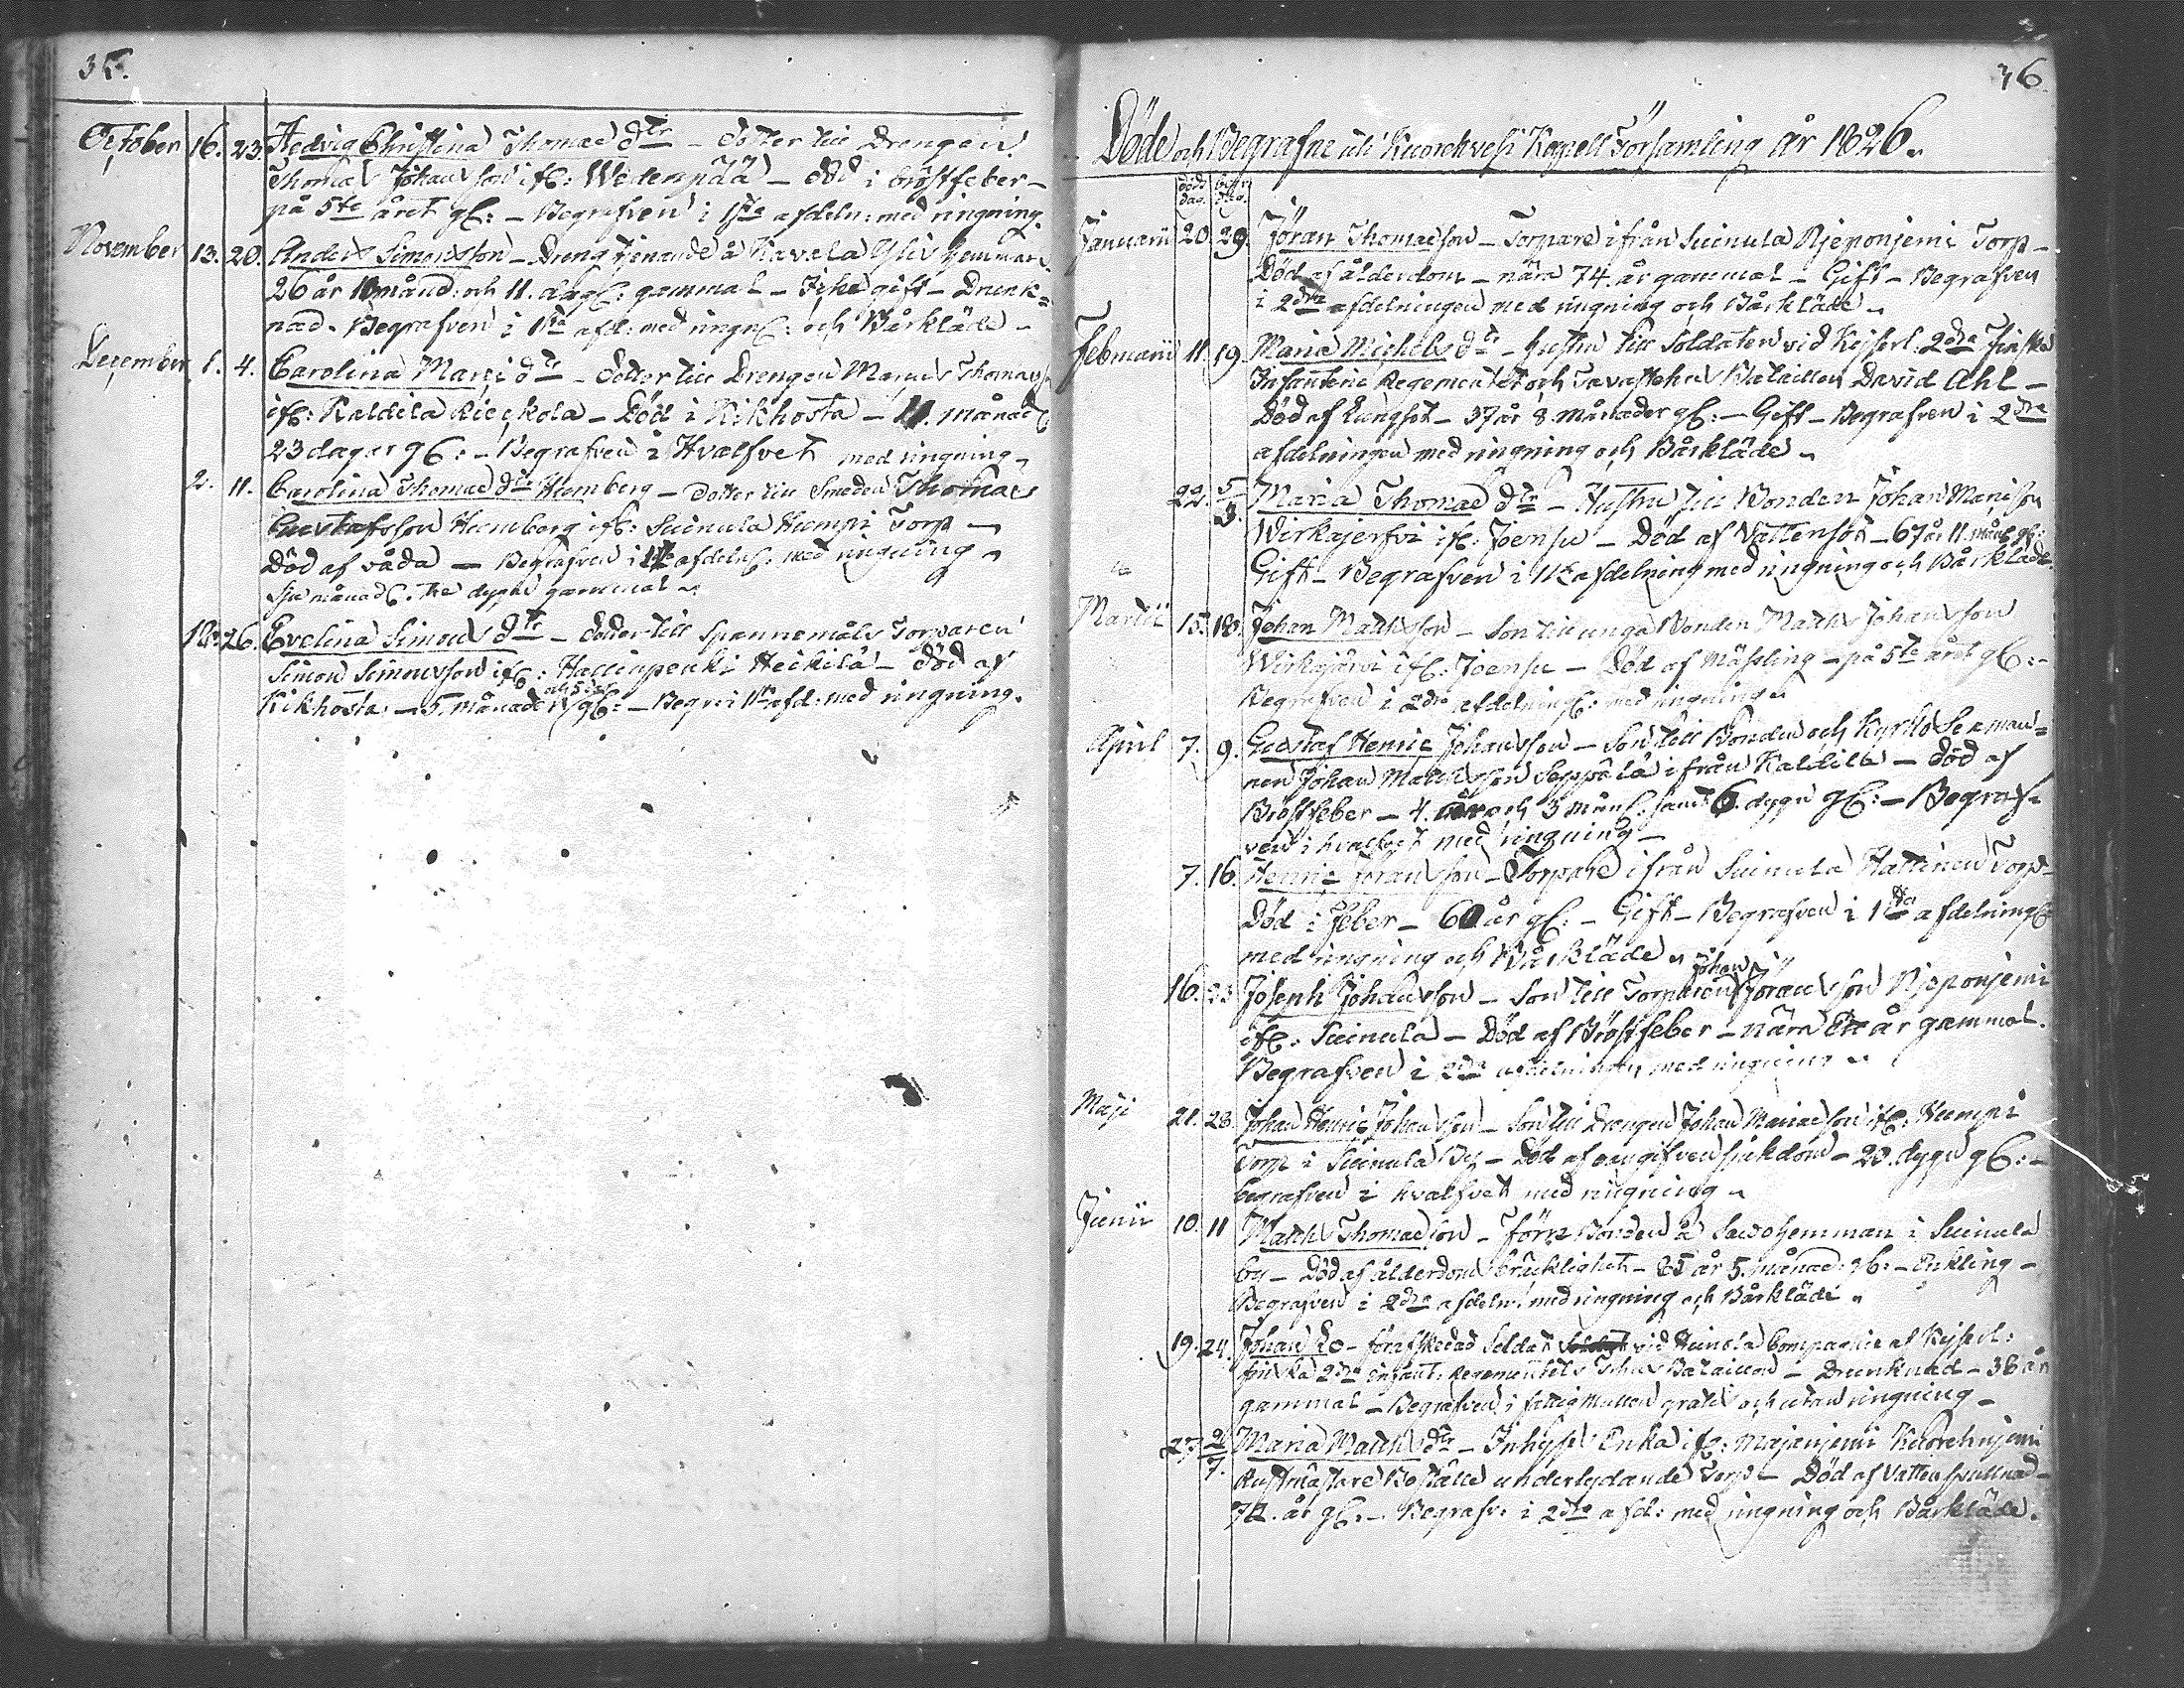 35.
October 16. 23. Hedvig Christina Thomae dtr - dotter till Drengen
Thomas Johansson ifr: Wedenpää - död i bröstfeber -
på 5te året gl: - Begrafven i 1sta afdeln: med ringning.
November 13. 20. Anders Simonsson - Dreng tjenande å Kavala Yli hemman
26 år 10 månad: och 11. dag: gammal - Icke gift - Drunk=
nad. Begrafven i 1sta afd: med ringn: och Bårkläde -
December 1. 4. Carolina Marci dtr - dotter till Drengen Marcus Thomass
ifr: Kaldila - Död i Kikhosta - 11. månad
23 dagar gl: - Begrafven i Hvalfvet med ringning -
2. 11. Carolina Thomae dtr Humberg - dotter till Smeden Thomas
Gustafsson Humberg ifr: Suinula Humpi Torp -
Död af våda - Begrafven i 1sta afdeln: med ringning -
Sju månad: tre dygn gammal -
18. 26. Evelina Simons dtr - dotter till Spannemåls Torparen
Simon Simonsson ifr: Hallinpenki Heikilä - död af
Kikhosta - 5. månader gl: - Begr: i 1sta afd: med ringning.
36.
Döde och Begrafne uti Kuorehvesi Kapell Församling år 1826.
död dag. begr: dag.
Januarii 20. 29. Jöran Thomasson - Torpare ifrån Suinula Njeponjemi Torp -
Död af ålderdom - nära 74. år gammal - Gift - Begrafven
i 2dra afdelningen med ringning och Bårkläde -
Februarii 11. 19. Maria Michels dtr - hustru till Soldaten vid Kejserl: 2dra Finska
Infanterie Regementet och Tavastehus Bataillon David Ahl -
Död af Lungsot - 37 år 8. månader gl: - Gift - Begrafven i 2dra
afdelningen med ringning och Bårkläde -
22. 5/3. Maria Thomae dtr - Hustru till Bonden Johan Marcisson
Wirkajerfvi ifr: Joensu - Död af Vattensot - 67 år 11. mån: gl:
Gift - Begrafven i 1sta afdelning med ringning och Bårkläde.
Martii 15. 18. Johan Mattsson - Son till unga Bonden Matts Johansson
Wirkajärvi ifr: Joensu - Död af Mässling - på 5te året gl: -
Begrafven i 2dra afdelning: med ringning -
April 7. 9. Gustaf Henric Johansson - Son till Bonden och Kyrko Sexman=
nen Johan Mattsson Seppälä ifrån Kaldila - död af
Bröstfeber - 4. år och 3 mån: samt 6. dygn gl: - Begraf=
ven i hvalfvet med ringning -
7. 16. Henric Jöransson - Torpare ifrån Suinula Hattinen Torp -
Död i feber - 60 år gl: - Gift - Begrafven i 1sta afdelning:
med ringning och Bårkläde -
16. 23 Joseph Johansson - Son till Torparen Johan Jöransson Njeponjemi
ifr: Suinula - Död af Bröstfeber - nära Ett år gammal.
Begrafven i 2dra afdelningen med ringning -
Maji 21. 28. Johan Henric Johansson - Son till Drengen Johan Mariaeson ifr: Humpi
Torp i Suinula By - Död af oangifven sjukdom - 20. dygn gl: -
begrafven i hvalfvet med ringning -
Junii 10. 11 Matts Thomasson - förre Bonden å Savo hemman i Suinula
by - Död af ålderdoms bräcklighet - 85 år 5. månad: gl: - Enkling -
Begrafven i 2dra afdeln: med ringning och Bårkläde -
19. 24. Johan Lo - förafskedad Soldat vid Heinola Compagnie af Kejserl:
finska 2dra Infant: Regementets Bataillon - Drunknad - 36 år
gammal - Begrafven i gratis och utan ringning -
27. 2/7. Maria Matts dtr - Inhyses Enka ifr: Majanjemi Kuorehnjemi
Rustmästare Boställe underlydande Torp - Död af Vattensvullnad -
72. år gl: - Begrafv: i 2dra afd: med ringning och Bårkläde.